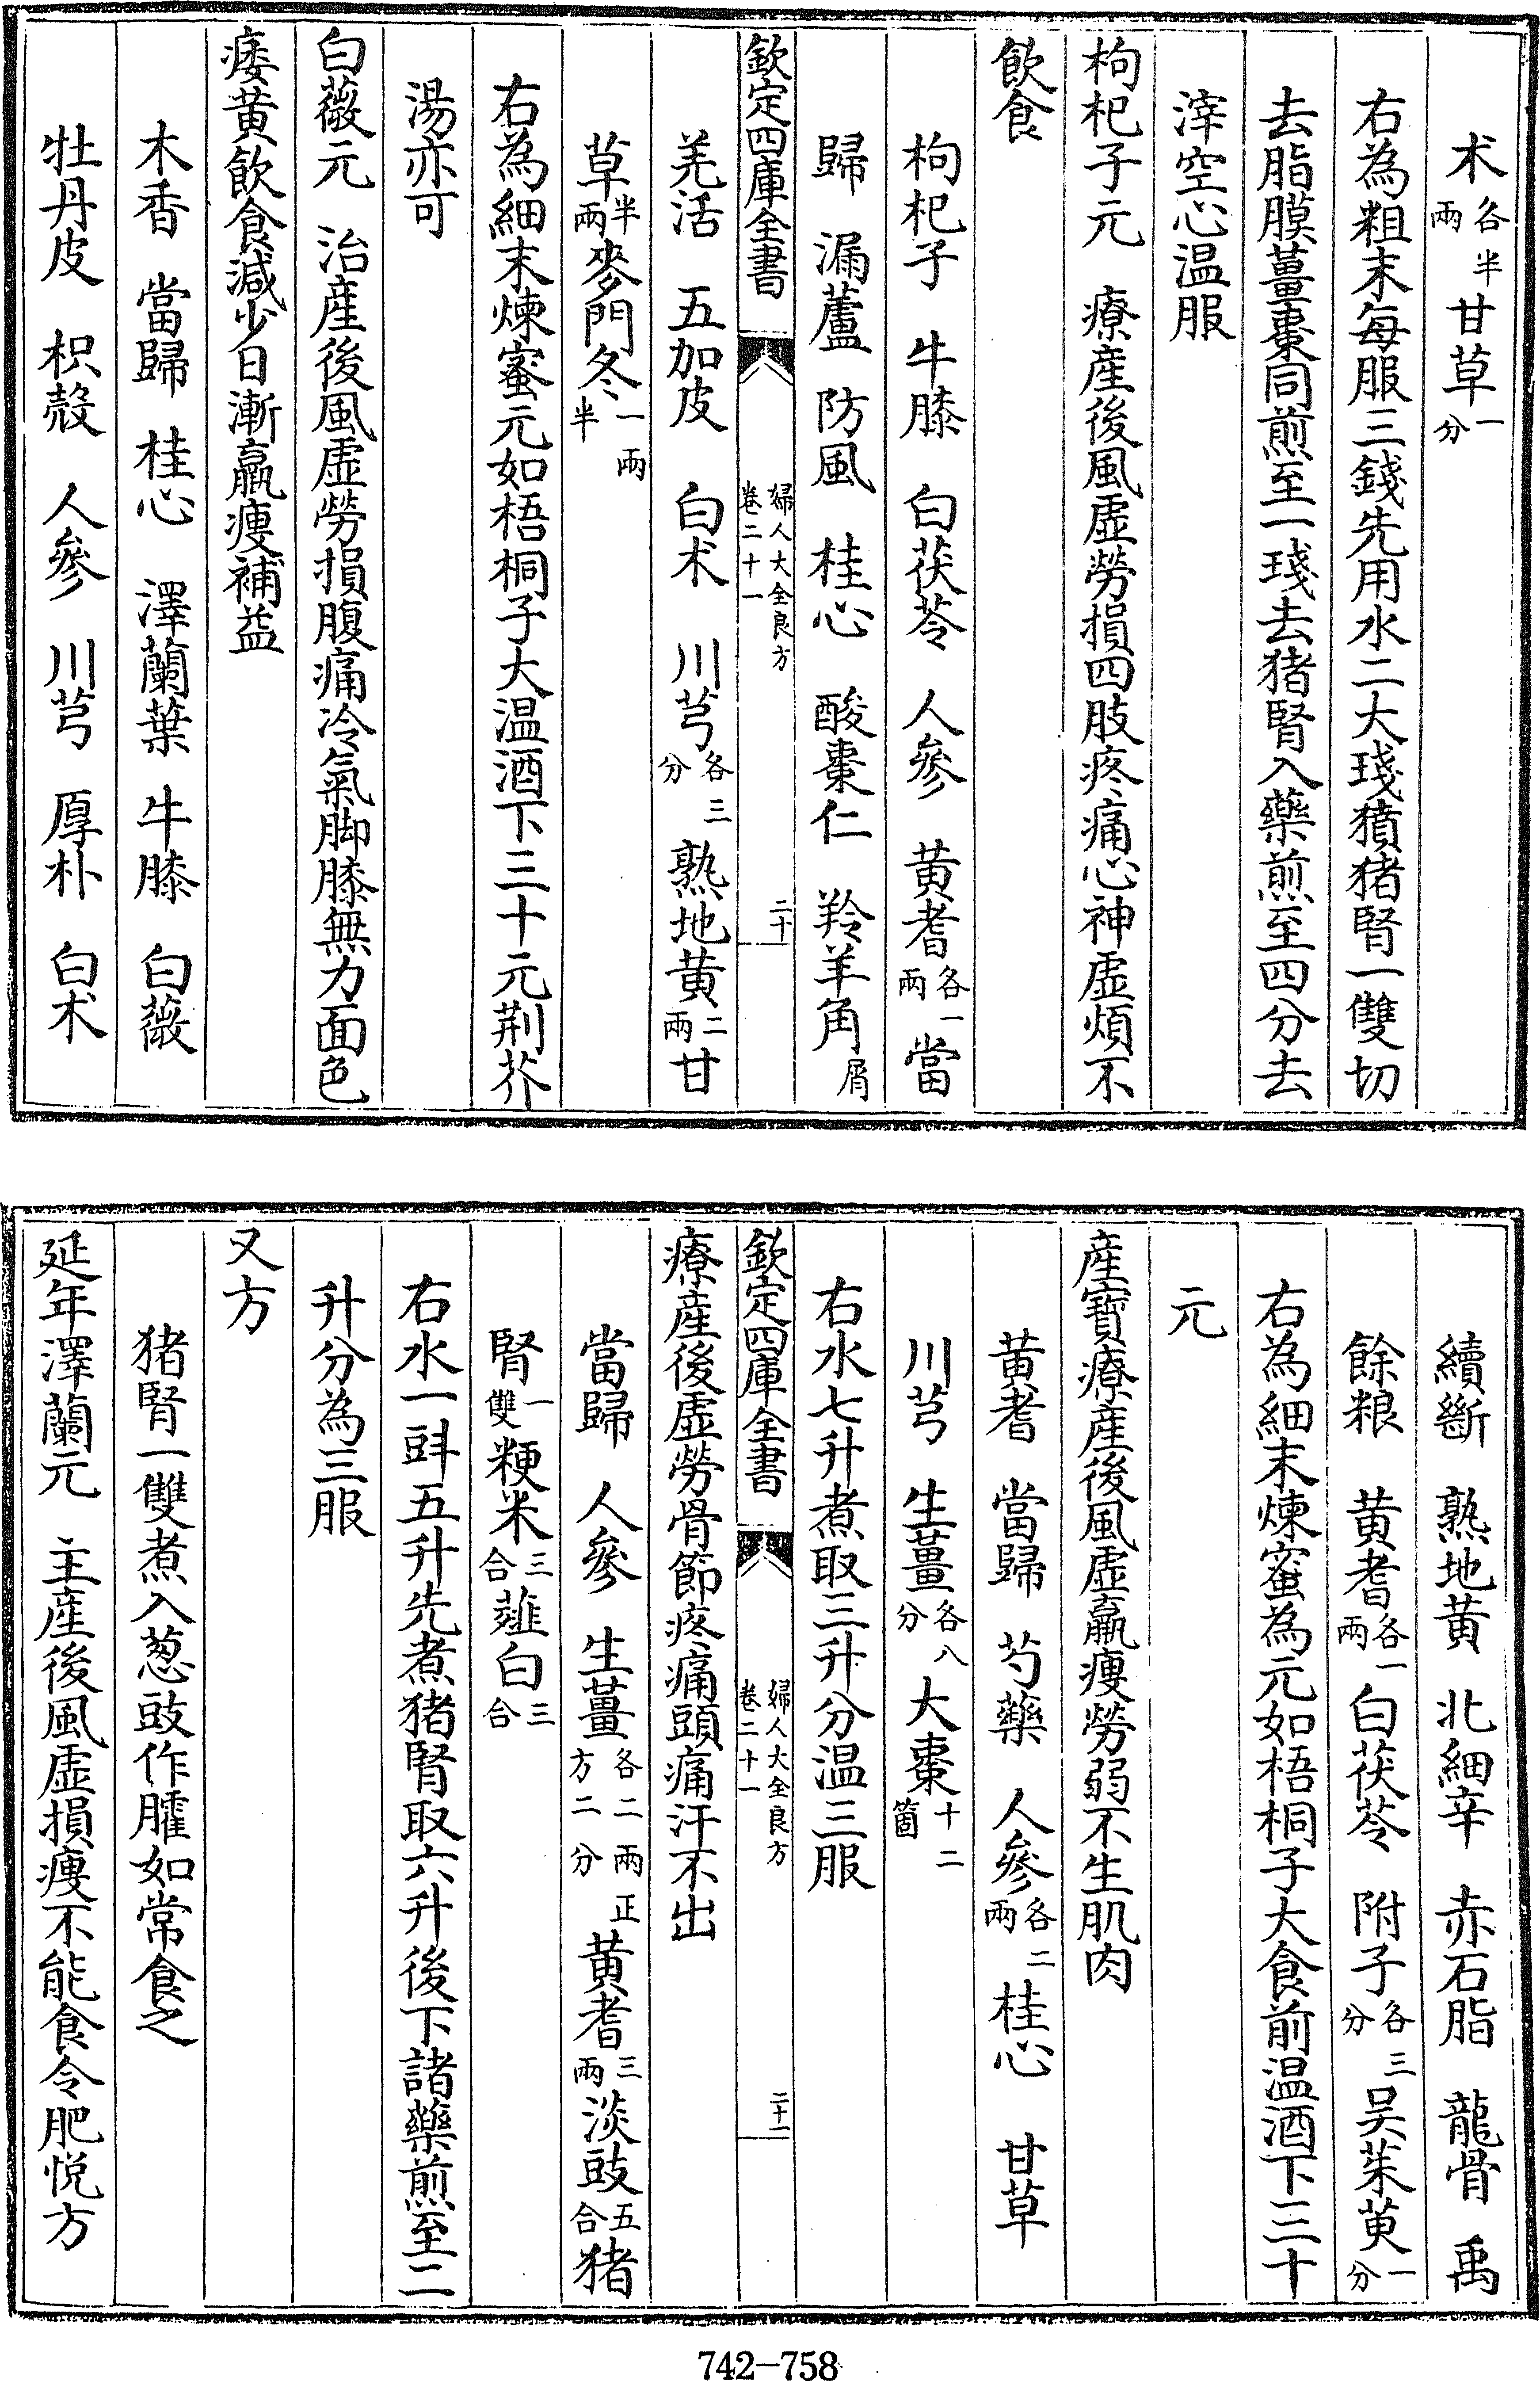 术各半兩甘草一分
右為粗末每服三錢先用水二大琖獖猪腎一雙切
去脂膜薑棗同煎至一琖去猪腎入藥煎至四分去
滓空心温服
枸杞子元　療産後風虛勞損四肢疼痛心神虛煩不
飲食
枸杞子　牛膝　白茯苓　人參　黄耆各一兩當
歸　漏蘆　防風　桂心　酸棗仁　羚羊角屑
欽定四庫全書　婦人大全良方卷二十一　二十
羌活　五加皮　白术　川芎各三分　熟地黄二兩甘
草半兩麥門冬一兩半
右為細末煉蜜元如梧桐子大温酒下三十元荆芥
湯亦可
白薇元　治産後風虛勞損腹痛冷氣脚膝無力面色
痿黄飲食減少日漸羸瘦補益
木香　當歸　桂心　澤蘭葉　牛膝　白薇
牡丹皮　枳殼　人參　川芎　厚朴　白术
續斷　熟地黄　北細辛　赤石脂　龍骨　禹
餘粮　黄耆各一兩白茯苓　附子各三分　吴茱萸一分
右為細末煉蜜為元如梧桐子大食前温酒下三十
元
産寳療産後風虛羸瘦勞弱不生肌肉
黄耆　當歸　芍藥　人參各二兩桂心　甘草
川芎　生薑各八分　大棗十二箇
右水七升煮取三升分温三服
欽定四庫全書　婦人大全良方卷二十一　二十一
療産後虛勞骨節疼痛頭痛汗不出
當歸　人參　生薑各二兩正方二分　黄耆三兩淡豉五合猪
腎一雙粳米三合薤白三合
右水一㪷五升先煮猪腎取六升後下諸藥煎至二
升分為三服
又方
猪腎一雙煮入葱豉作臛如常食之
延年澤蘭元　主産後風虛損瘦不能食令肥悦方
742-758